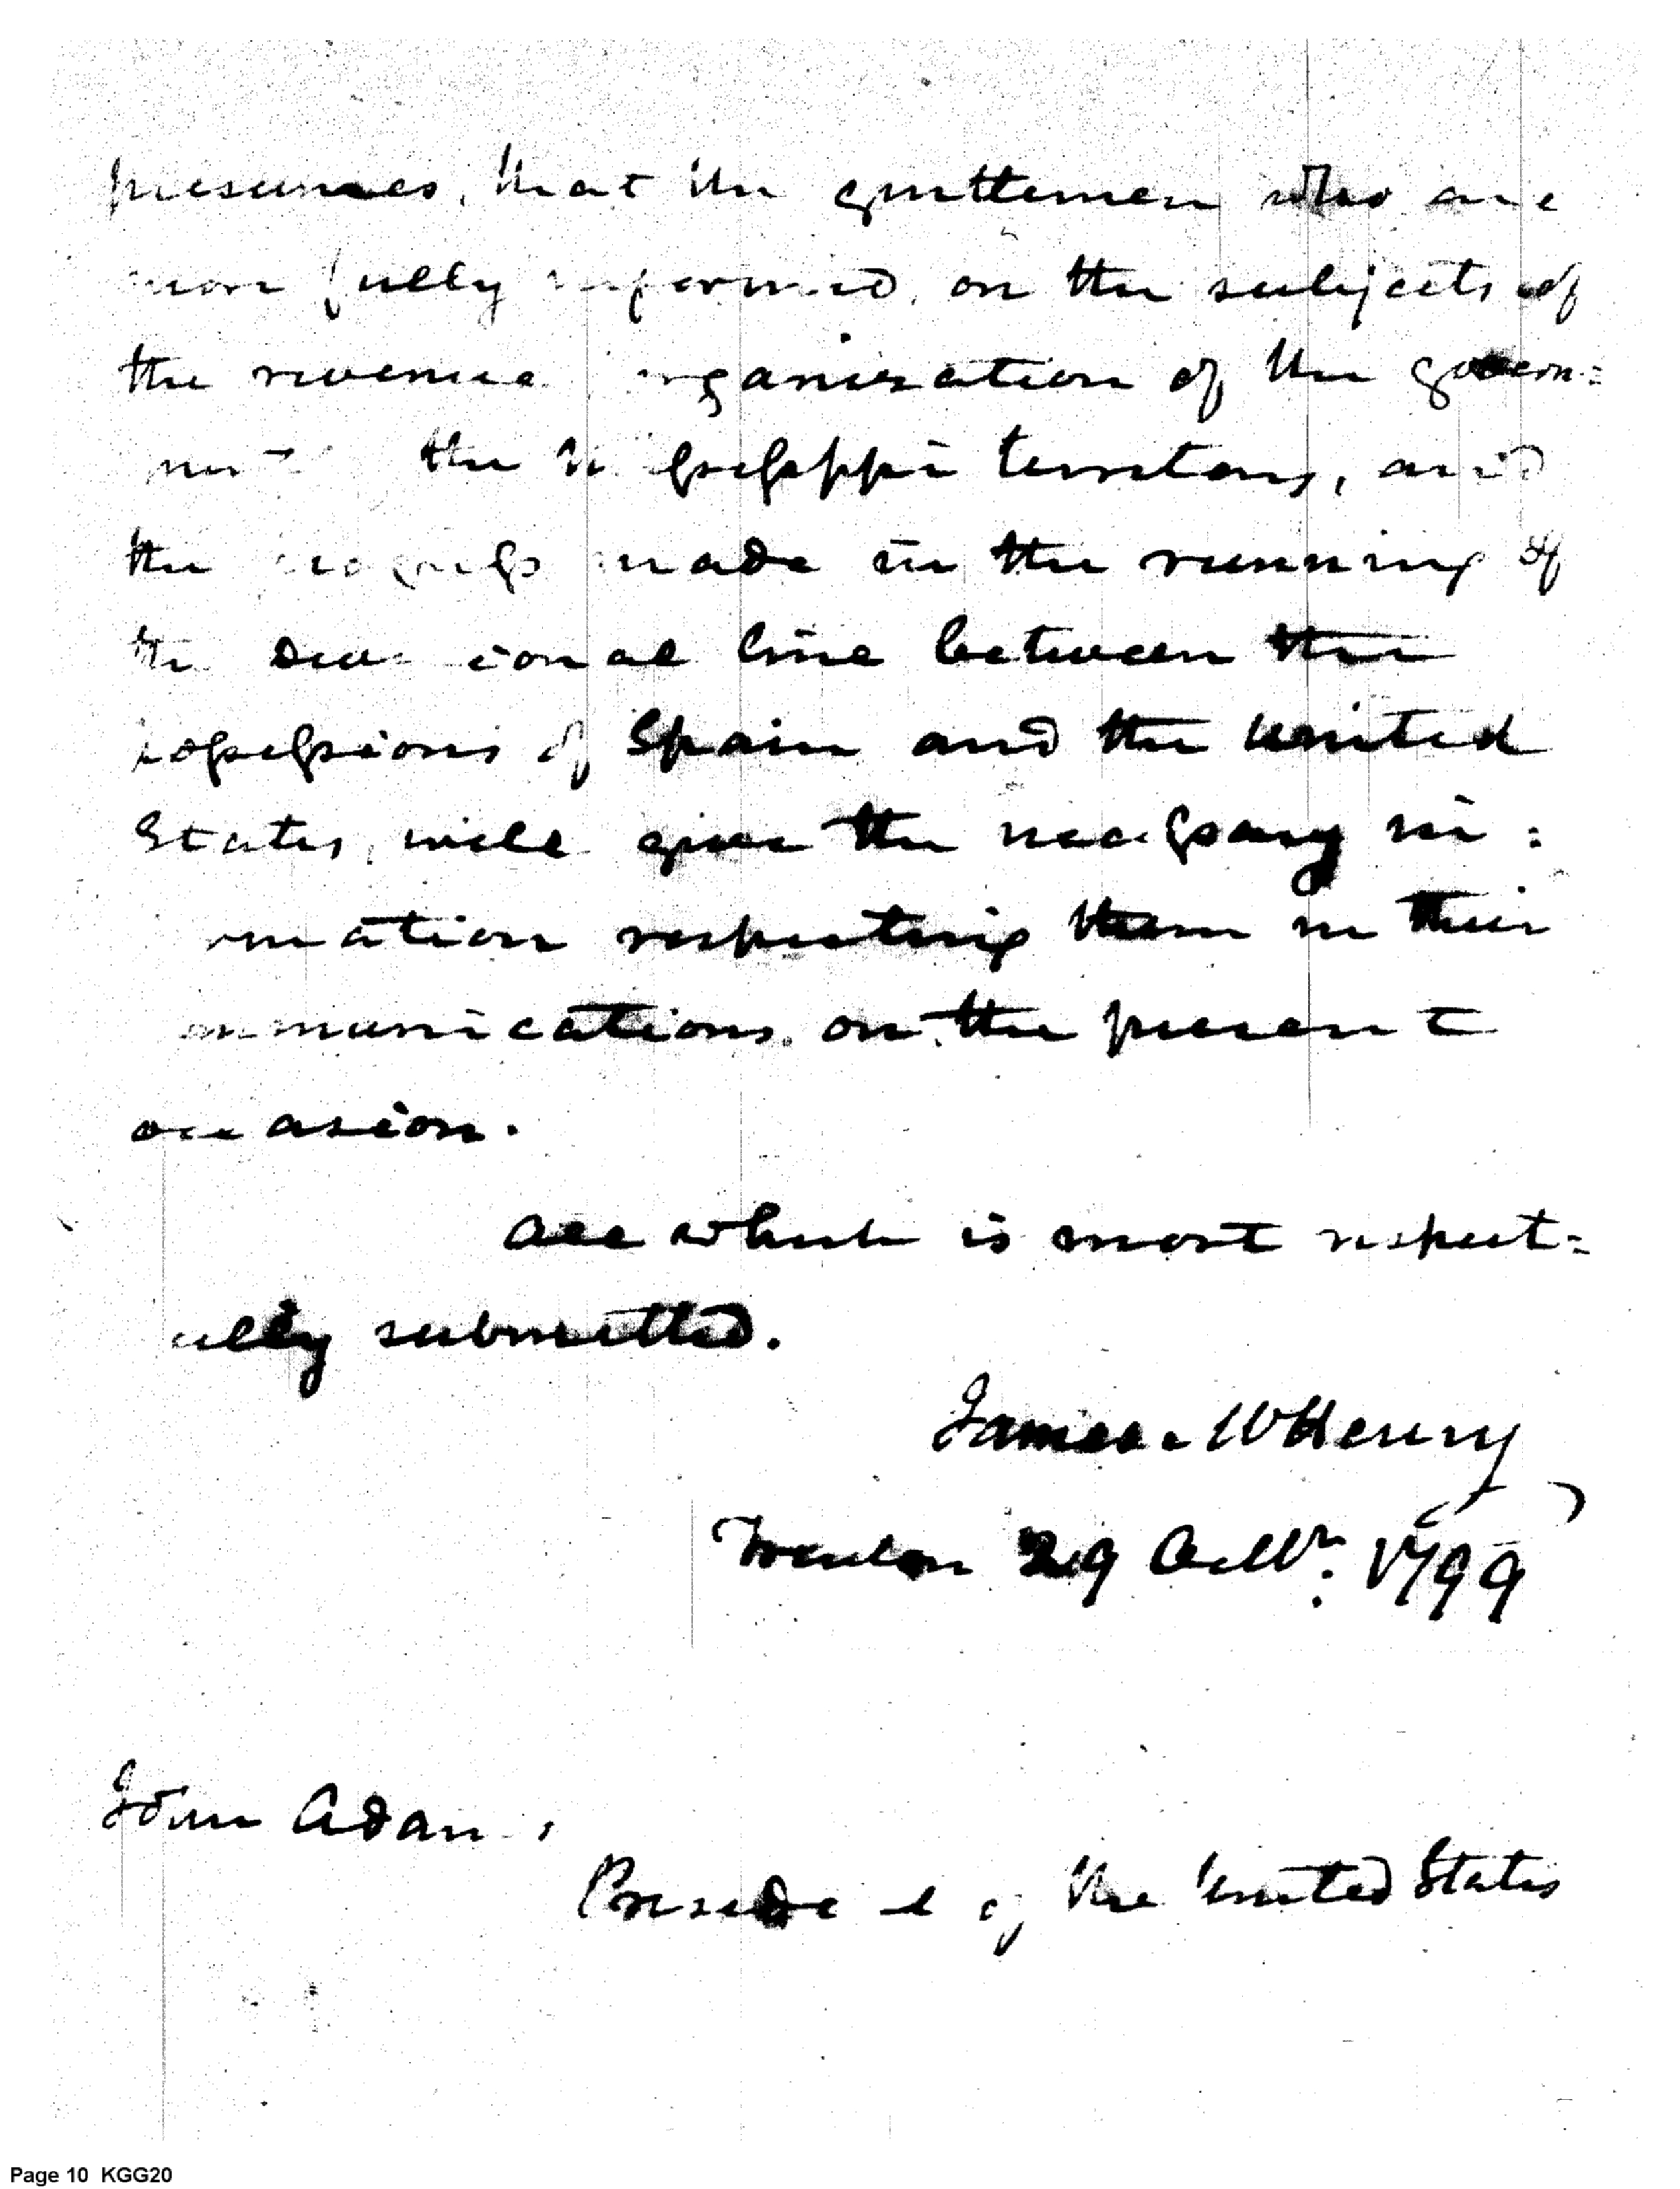 presumes, that the gentlemen who are
more fully informed, on the subjects of
the revenue organization of the govern=
ment the Mississippi territory, and
the progress made in the running of
the divisional line between the
possessions of Spain and the United
States, will give the necessary in=
formation respecting them in their
communications on the present
occasion.
All which is most respect=
fully submitted.
James McHenry
Trenton 29 Octbr. 1799
John Adams,
President of the United States
Page 10 KGG20